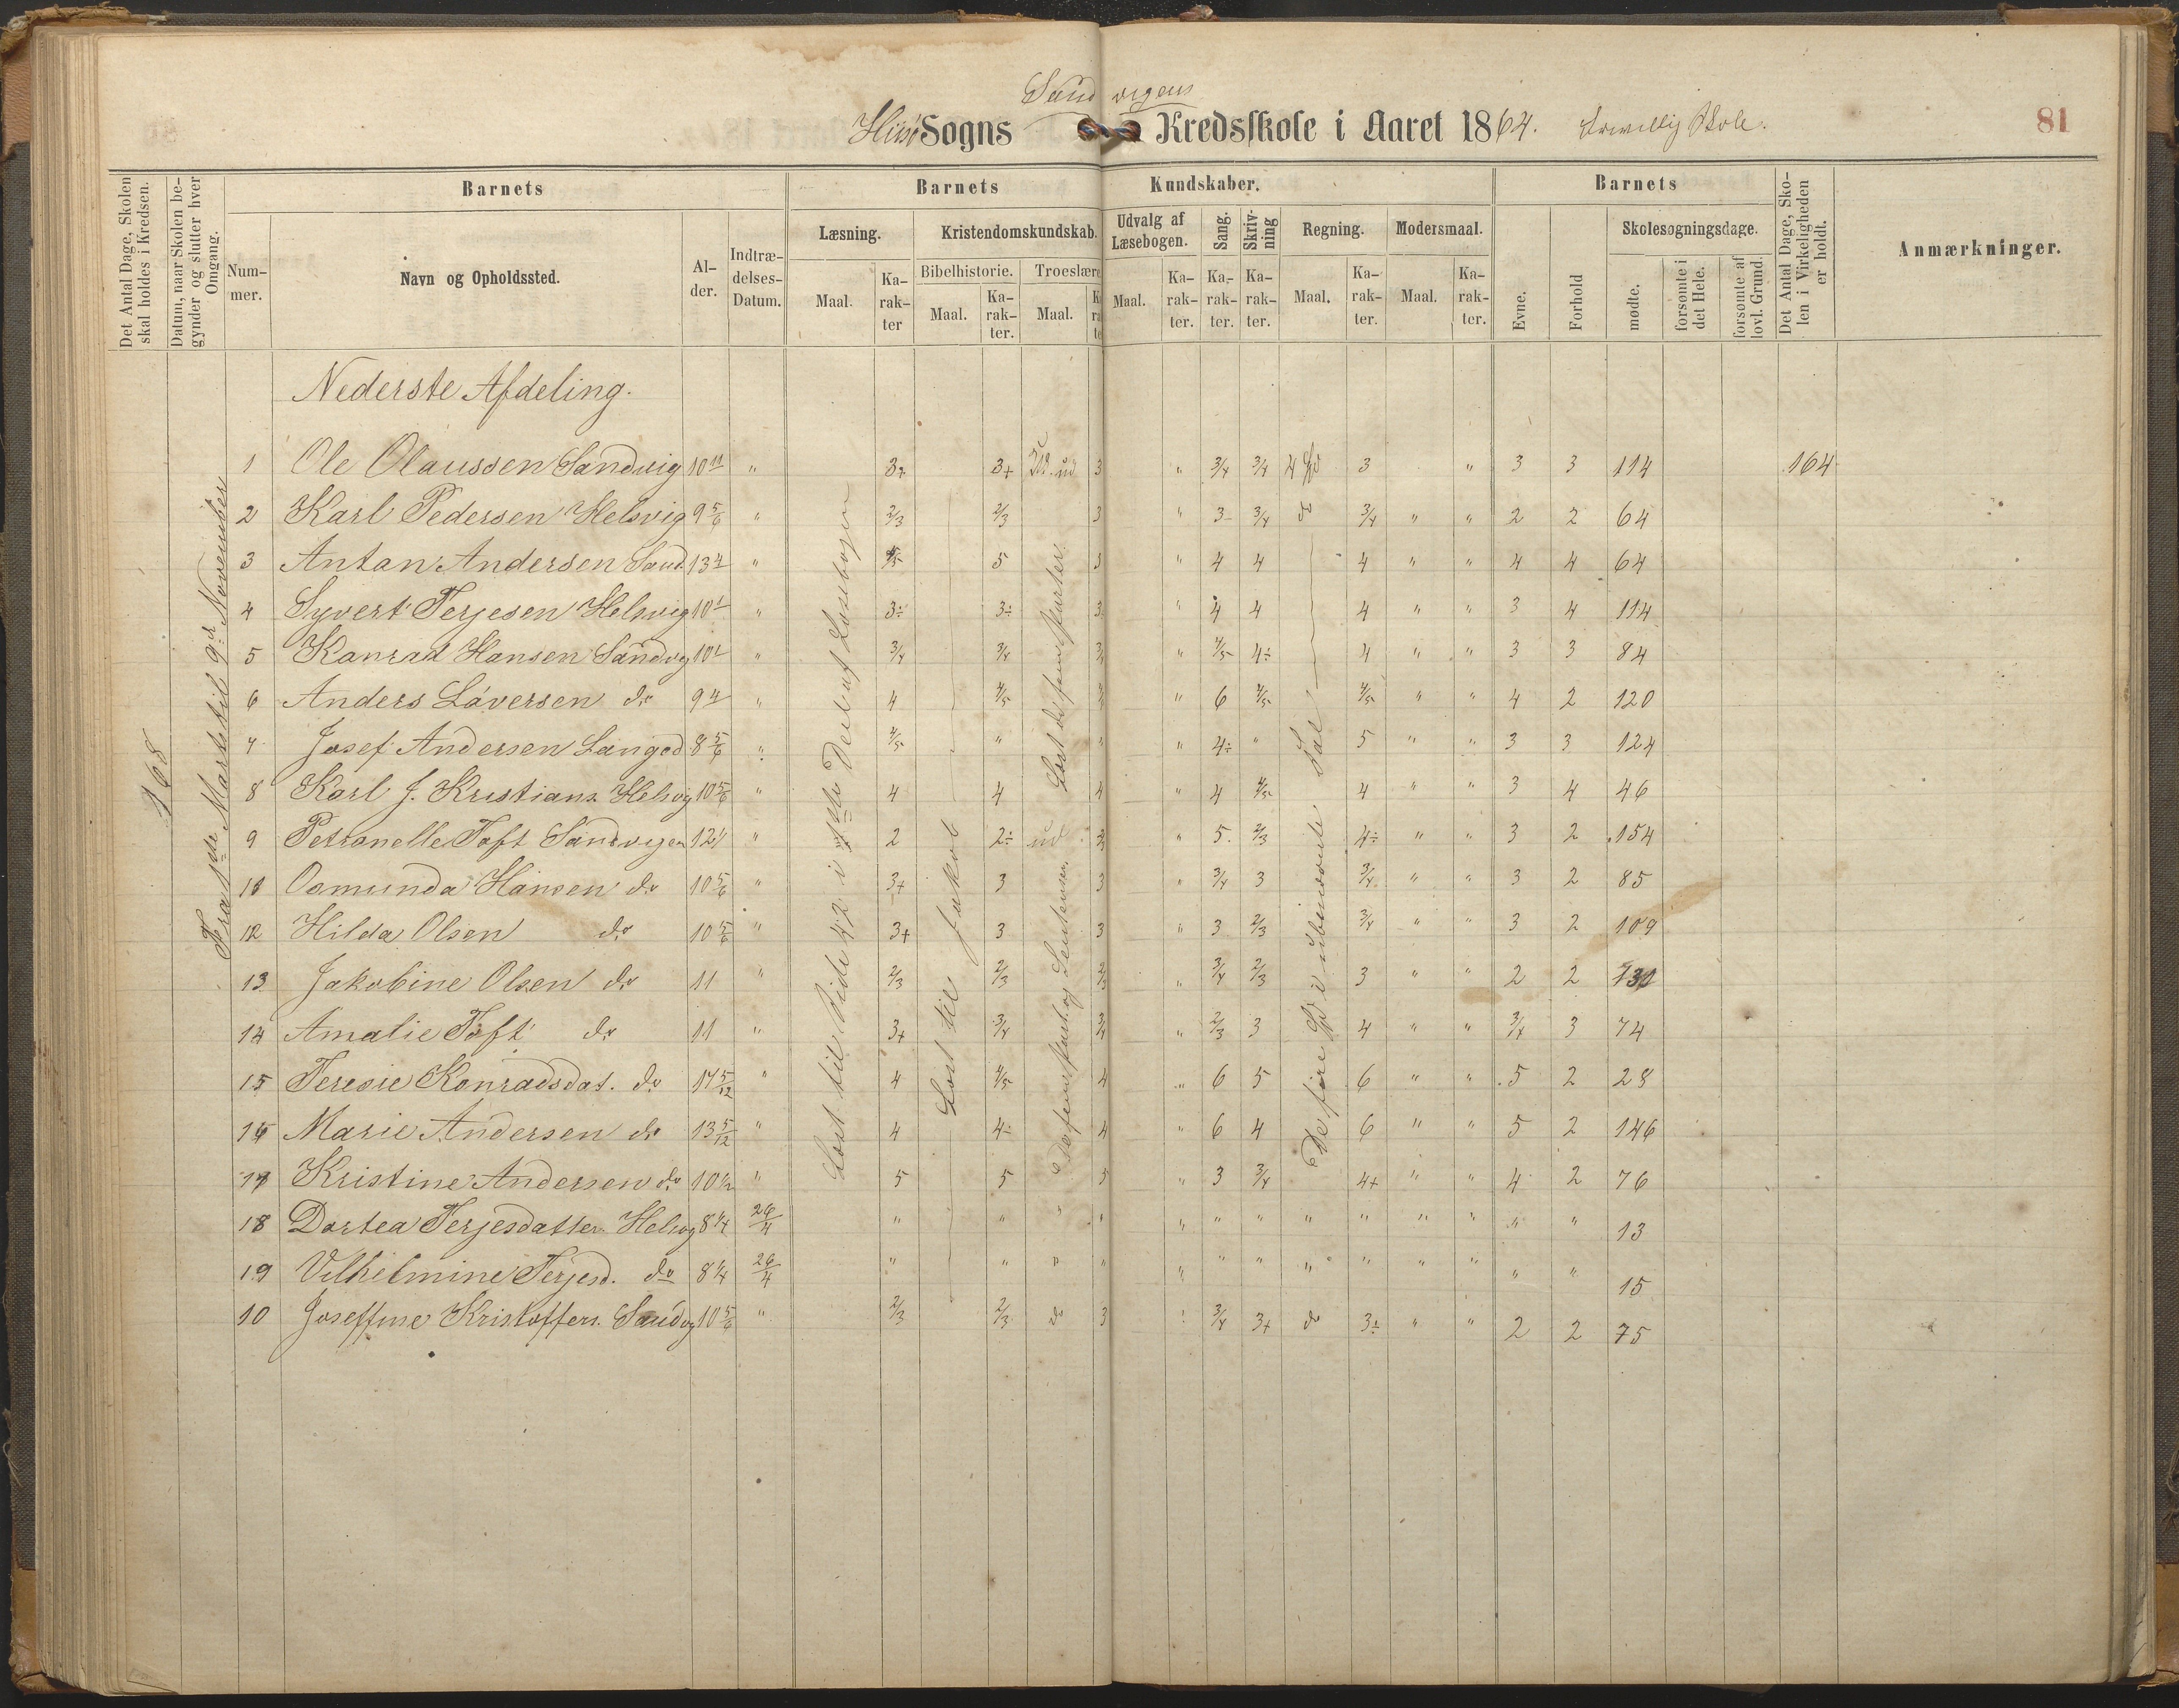 Sandvigens
Hisø Sogns Kredsskole i Aaret 1864. Frivillig Skole. 81
Det Antal Dage, Skolen skal holdes i Kredsen.
Datum, naar Skolen begynder og slutter hver Omgang.
Barnets
Nummer.
Navn og Opholdssted.
Alder.
Indtrædelses-Datum.
Barnets Kundskaber.
Læsning.
Maal.
Karakter
Kristendomskundskab.
Bibelhistorie.
Maal.
Karakter.
Troeslære
Maal.
Udvalg af Læsebogen.
Maal.
Karakter.
Sang.
Karakter.
Skrivning
Karakter.
Regning.
Maal.
Karakter.
Modersmaal.
Maal.
Karakter.
Barnets
Evne.
Forhold
Skolesøgningsdage.
mødte.
forsømte i det Hele.
forsømte af lovl. Grund.
Det Antal Dage, Skolen i Virkeligheden er holdt.
Anmærkninger.
168
Fra 1ste Marts til 9de November
Læst til Side 42 i 1ste Deel af Læsebogen
Læst til Jakob
Læst de fem Parter.
De fem Part. og Sentenser
De fire Sp. i ubenævnte Tal
Nederste Afdeling.
1 Ole Olaussen Sandvig 10 11 " 3+ 3+ ud 3 " 3/4 3/4 4 Sp 3 " 3 3 114 164
2 Karl Pedersen Helsvig 9 5/6 " 2/3 2/3 3 " 3- 3/4 do 3/4 " " 2 2 64
3 Antan Andersen Sand 13 " 4/5 5 3 " 4 4 4 " " 4 4 64
4 Syvert Terjesen Helsvig 10 " 3÷ 3÷ 3 " 4 4 4 " " 3 4 114
5 Konrad Hansen Sandvg 10 " 3/4 3/4 3/4 " 4/5 4÷ 4 " " 3 3 84
6 Anders Láversen do 9 " 4 4/5 " 6 4/5 4/5 " " 4 2 120
7 Josef Andersen Langød 8 5/6 " 4/5 " " " 4÷ " 5 " " 3 3 124
8 Karl J. Kristians. Helsvg 10 5/6 " 4 4 4 " 4 4/5 4 " " 3 4 46
9 Petronelle Toft Sandvigen 12 " 2 2÷ ud 2/3 " 5 2/3 4÷ " " 3 2 154
11 Osmunda Hansen do 10 5/6 " 3+ 3 3 " 3/4 3 3/4 " " 3 2 85
12 Hilda Olsen do 10 5/6 " 3+ 3 3 " 3 2/3 3/4 " " 3 2 109
13 Jakobine Olsen do 11 " 2/3 2/3 2/3 " 3/4 2/3 3 " " 2 2 131
14 Amalie Toft do 11 " 3+ 3/4 3/4 " 2/3 3 4 " " 3/4 3 74
15 Teresie Konradsdat. do 14 5/12 " 4 4/5 4 " 6 5 6 " " 5 2 28
16 Marie Andersen do 13 5/12 " 4 4÷ 4 " 6 4 6 " " 5 2 146
17 Kristine Andersen do 10 1/2 " 5 5 5 " 3 3/4 4+ " " 4 2 76
18 Dortea Terjesdatter Helsvg 8 1/4 26/4 " " " " " " " " " " " " " 13
19 Vilhelmine Terjesd. do 8 1/4 26/4 " " " " " " " " " " " " " 15
10 Joseffine Kristoffers. Sandvg 10 5/6 " 2/3 2/3 do 3 " 3/4 3+ do 3÷ " " 2 2 75